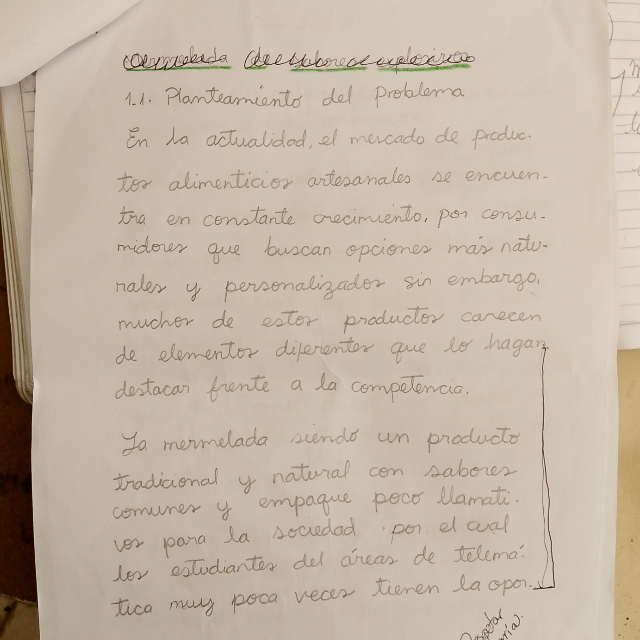 mermelada de sabores explosivos
1.1. Planteamiento del problema
En la actualidad, el mercado de produc-
tos alimenticios artesanales se encuen-
tra en constante crecimiento, por consu-
midores que buscan opciones más natu-
rales y personalizados sin embargo,
muchos de estos productos carecen
de elementos diferentes que lo hagan
destacar frente a la competencia.
La mermelada siendo un producto
tradicional y natural con sabores
comunes y empaque poco llamati-
vos para la sociedad por el cual
los estudiantes del áreas de telemá-
tica muy poca veces tienen la opor-